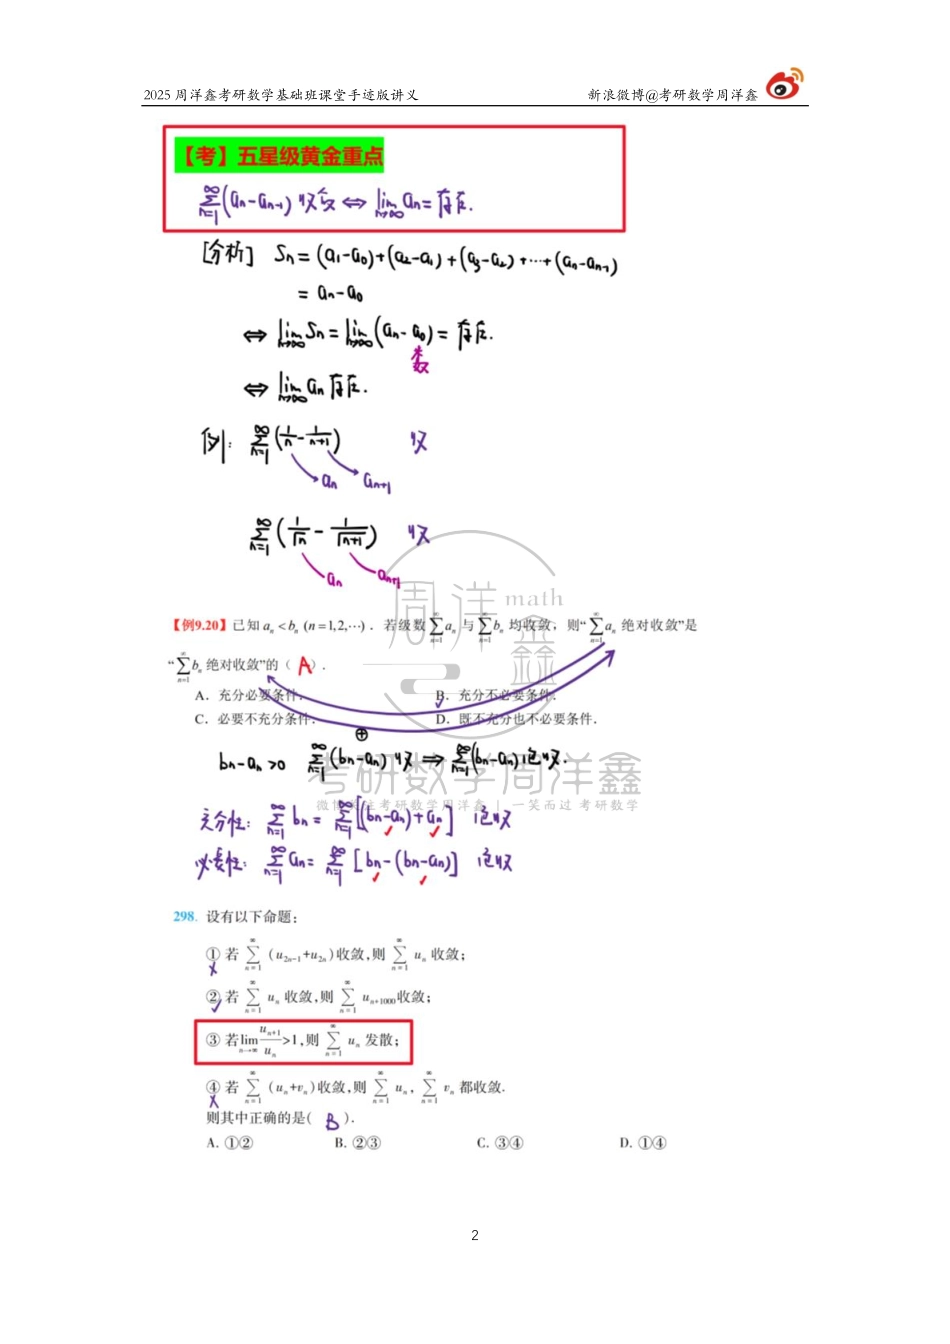 2025 周洋鑫考研数学基础班课堂手迹版讲义 新浪微博@考研数学周洋鑫
【考】五星级黄金重点
∑_{n=1}^{∞}(aₙ-aₙ₋₁) 收敛 ⇔ lim_{n→∞} aₙ=存在.
[分析] Sₙ=(a₁-a₀)+(a₂-a₁)+(a₃-a₂)+…+(aₙ-aₙ₋₁)
= aₙ-a₀
⇔ lim_{n→∞} Sₙ=lim_{n→∞}(aₙ-a₀)=存在.
常数
⇔ lim_{n→∞} aₙ 存在.
例: ∑_{n=1}^{∞}(1/n - 1/(n+1)) 收
aₙ aₙ₊₁
∑_{n=1}^{∞}(1/√n - 1/√(n+1)) 收
aₙ aₙ₊₁
周洋鑫 math
【例9.20】已知 aₙ<bₙ (n=1,2,…). 若级数 ∑_{n=1}^{∞} aₙ 与 ∑_{n=1}^{∞} bₙ 均收敛, 则“∑_{n=1}^{∞} aₙ 绝对收敛”是
“∑_{n=1}^{∞} bₙ 绝对收敛”的( A ).
A. 充分必要条件. B. 充分不必要条件.
C. 必要不充分条件. D. 既不充分也不必要条件.
⊕
bₙ-aₙ>0 ∑_{n=1}^{∞}(bₙ-aₙ) 收 ⇒ ∑_{n=1}^{∞}(bₙ-aₙ) 绝收.
考研数学周洋鑫
微博关注考研数学周洋鑫 | 一笑而过 考研数学
充分性: ∑_{n=1}^{∞} bₙ = ∑_{n=1}^{∞}[(bₙ-aₙ)+aₙ] 绝收
必要性: ∑_{n=1}^{∞} aₙ= ∑_{n=1}^{∞}[bₙ-(bₙ-aₙ)] 绝收
298. 设有以下命题:
① 若 ∑_{n=1}^{∞} (u₂ₙ₋₁+u₂ₙ)收敛,则 ∑_{n=1}^{∞} uₙ 收敛;
② 若 ∑_{n=1}^{∞} uₙ 收敛,则 ∑_{n=1}^{∞} uₙ₊₁₀₀₀收敛;
③ 若lim_{n→∞} uₙ₊₁/uₙ>1,则 ∑_{n=1}^{∞} uₙ 发散;
④ 若 ∑_{n=1}^{∞} (uₙ+vₙ)收敛,则 ∑_{n=1}^{∞} uₙ, ∑_{n=1}^{∞} vₙ 都收敛.
则其中正确的是( B ).
A. ①② B. ②③ C. ③④ D. ①④
2